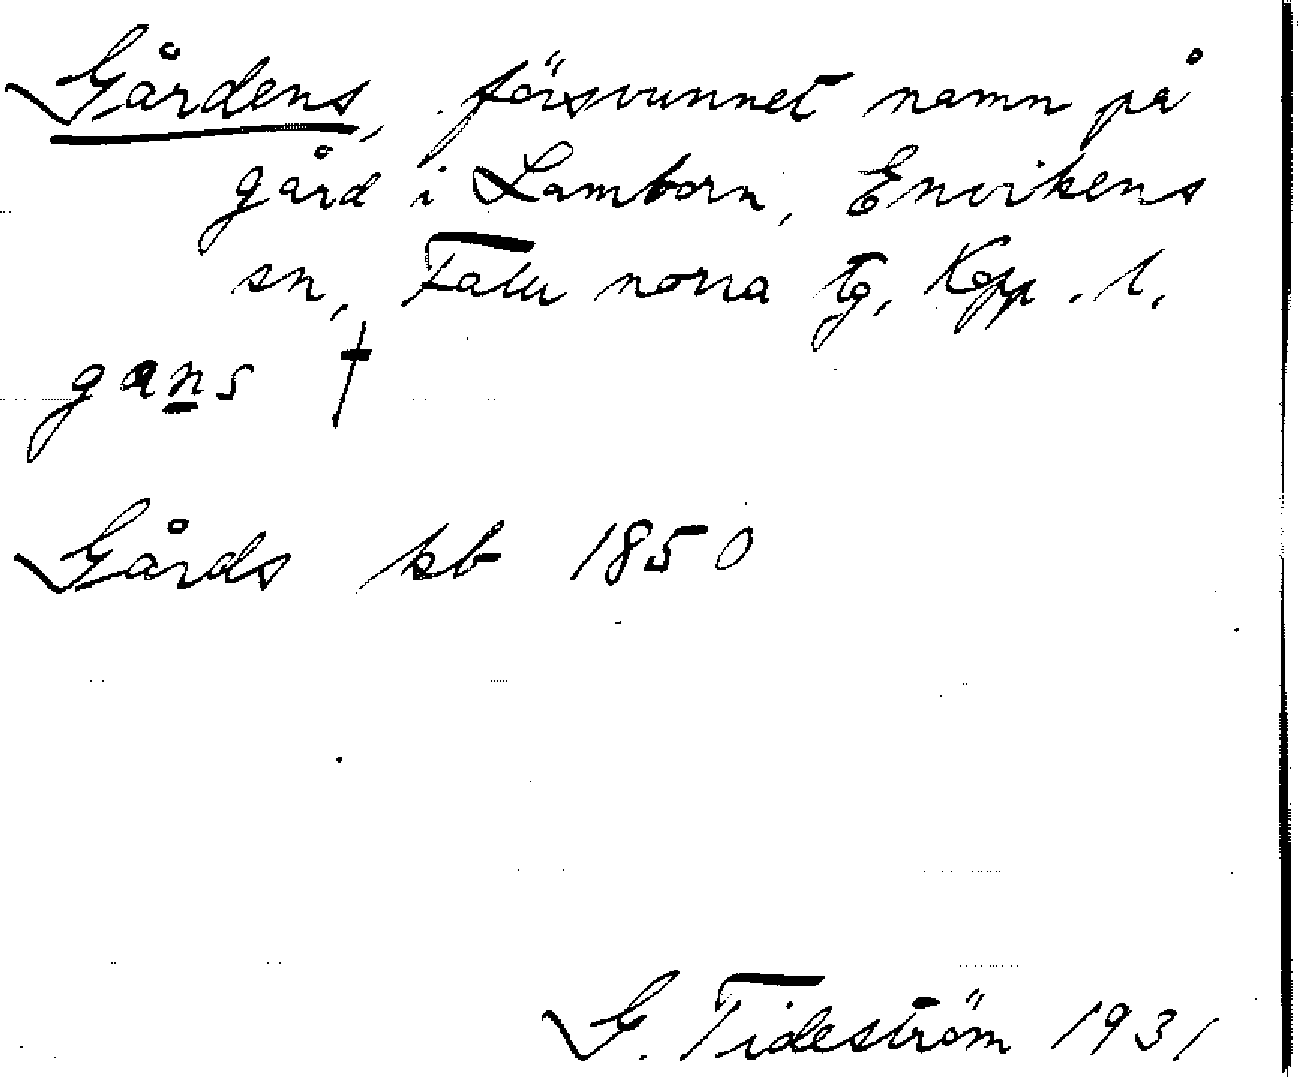 Gårdens, försvunnet namn på
gård i Lamborn, Envikens
sn, Falu norra tg, Kopp. l.
gans †
Gårds kb 1850
G. Tideström 1931